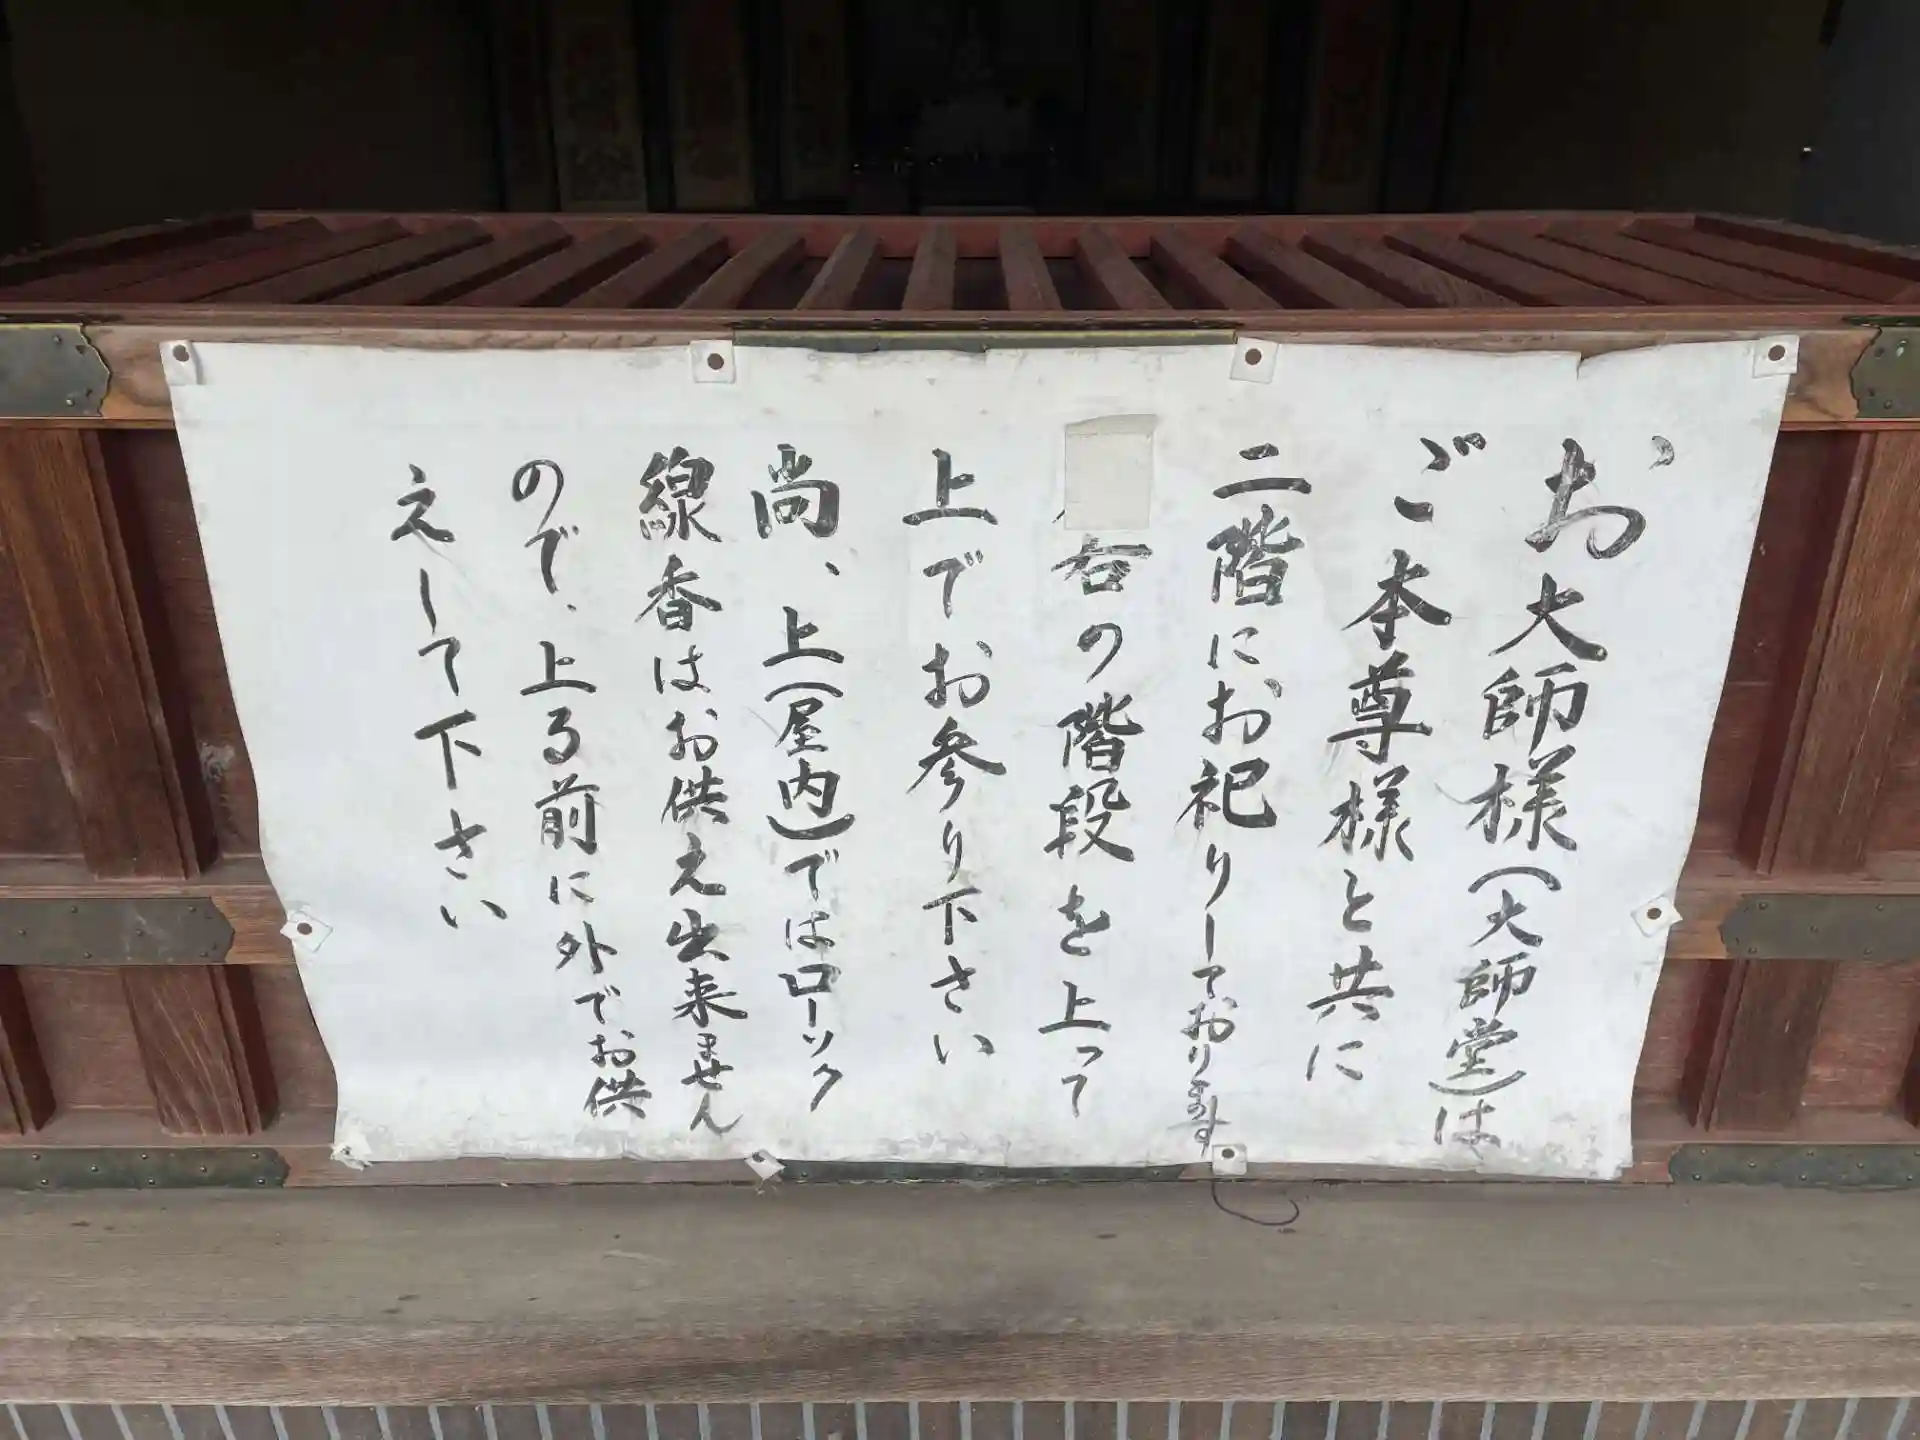 お大師様(大師堂)は
ご本尊様と共に
二階にお祀りしております
右の階段を上って
上でお参り下さい
尚、上(屋内)ではローソク
線香はお供え出来ません
ので、上る前に外でお供
えして下さい